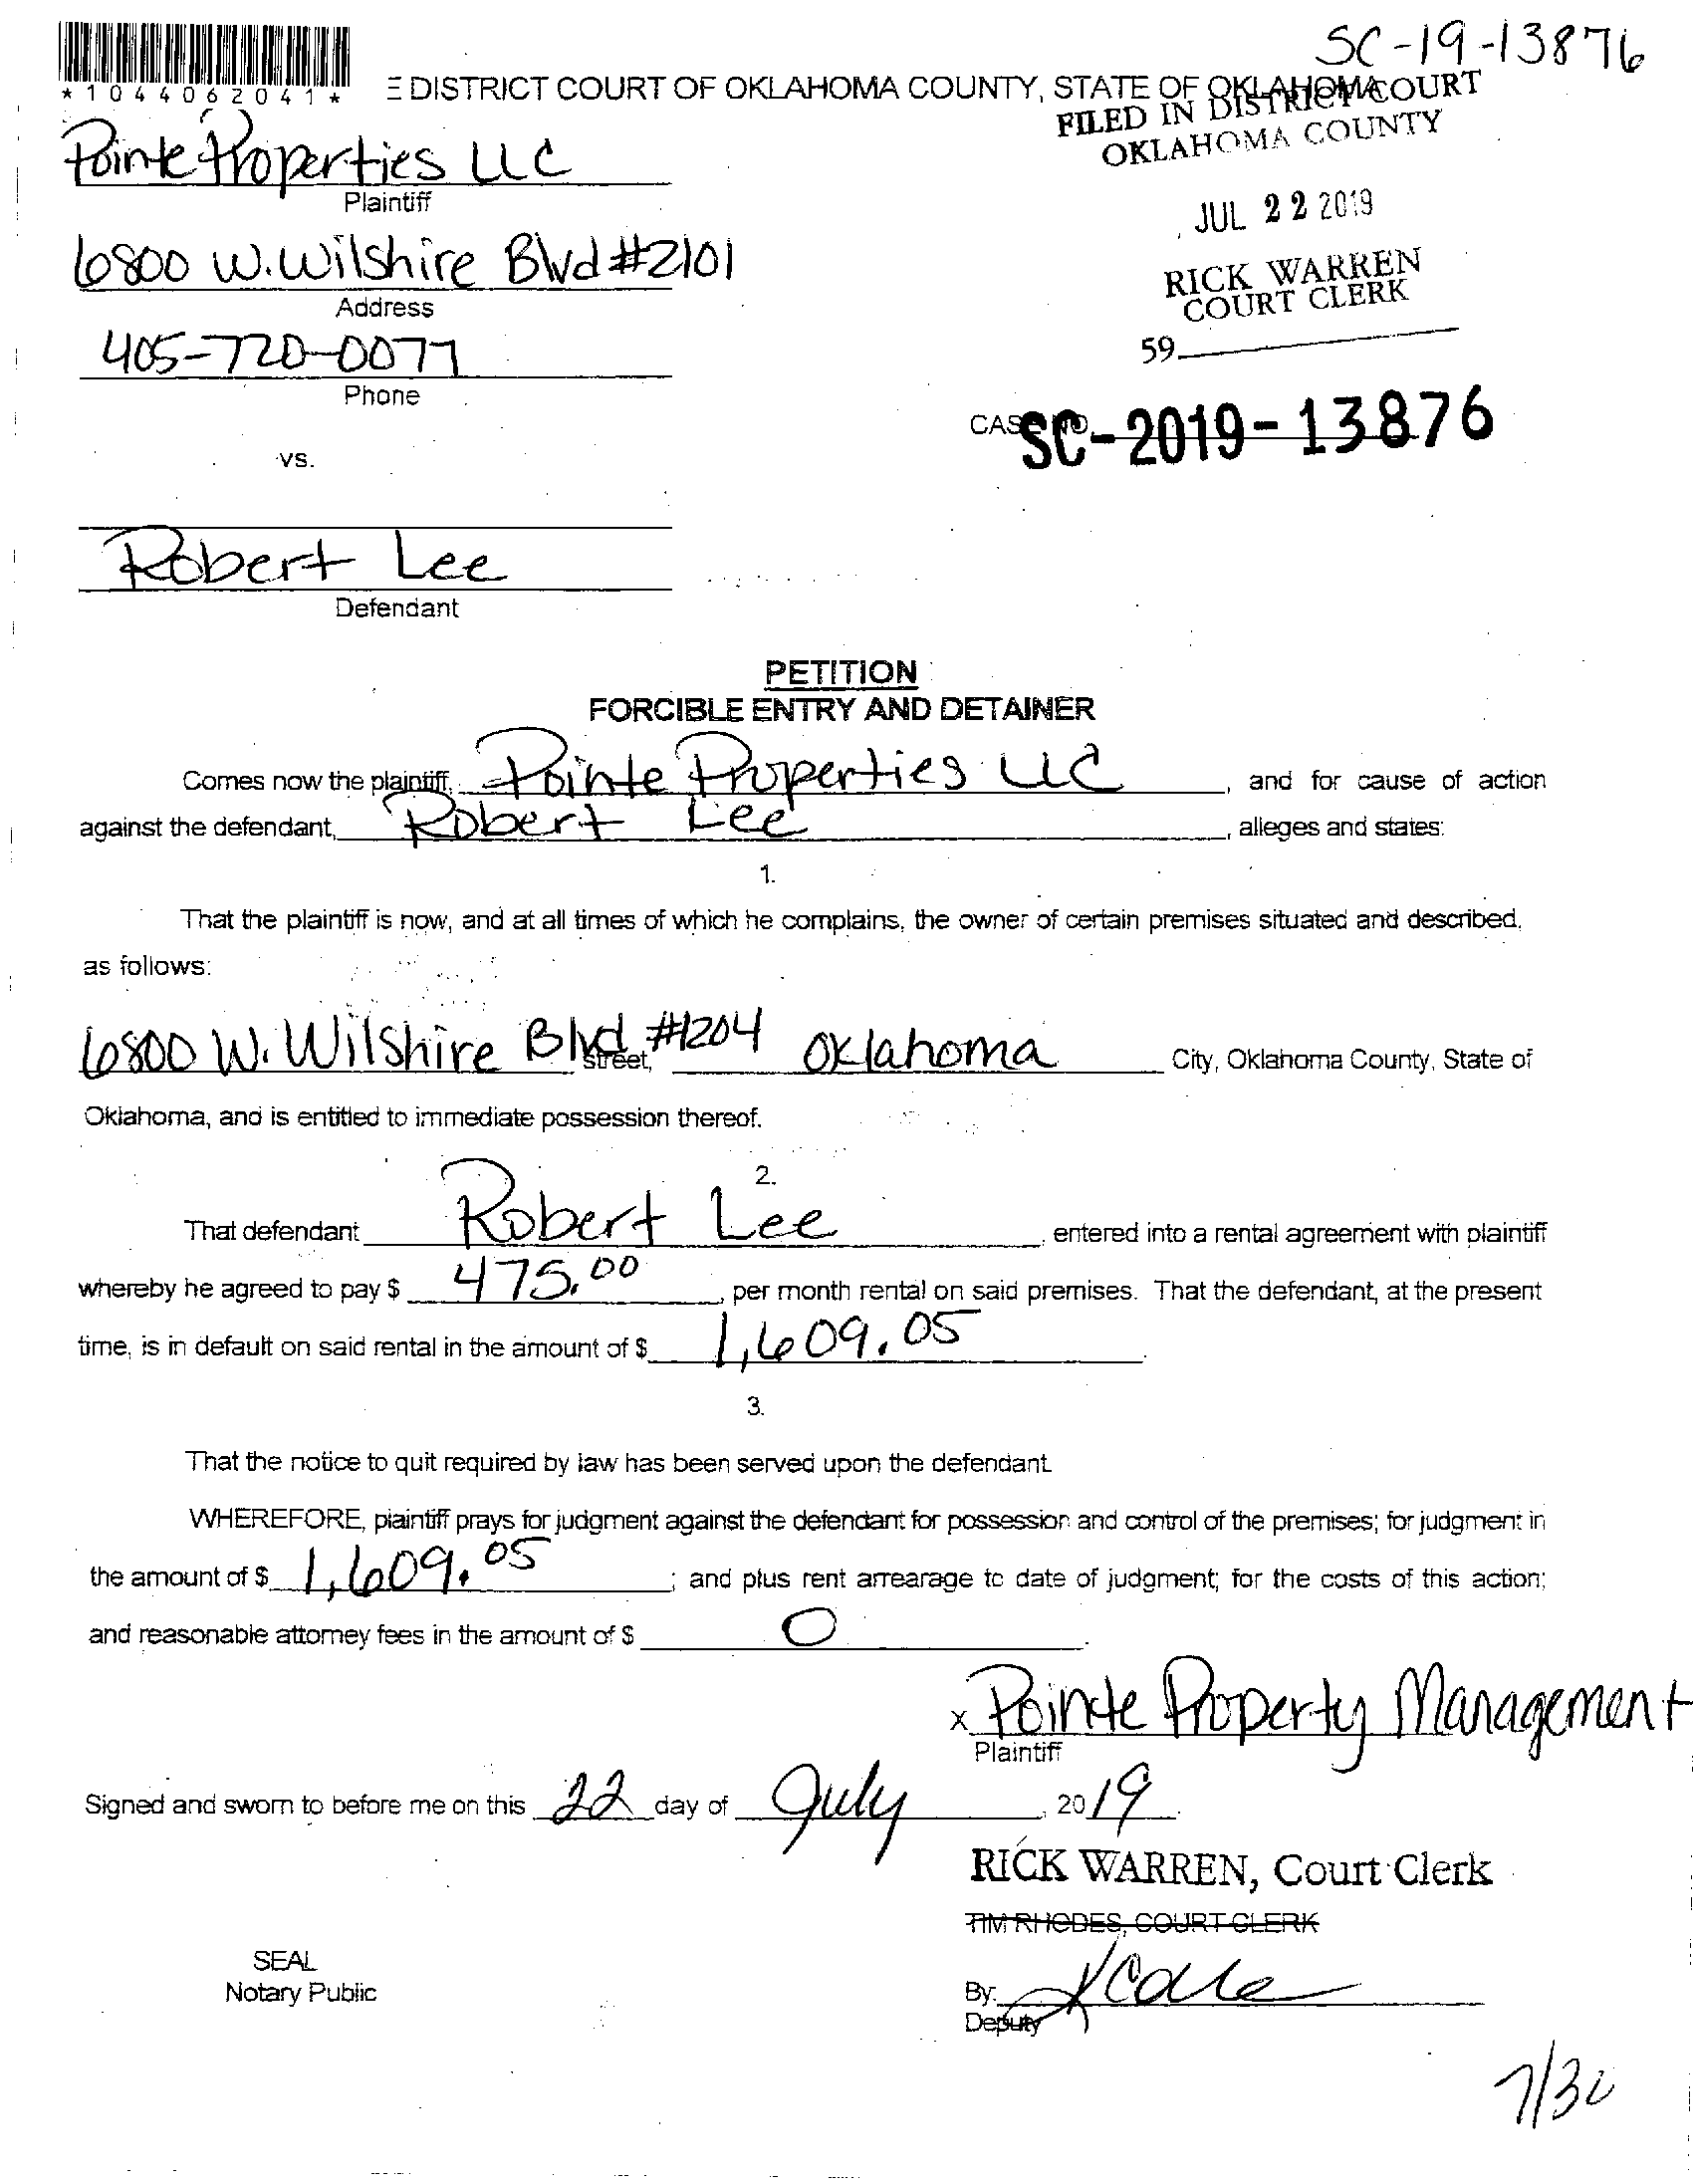 SC-19-13876
*1044062041*
E DISTRICT COURT OF OKLAHOMA COUNTY, STATE OF OKLAHOMA
FILED IN DISTRICT COURT
OKLAHOMA COUNTY
Pointe Properties LLC
Plaintiff
JUL 22 2019
6800 W. Wilshire Blvd #2101
Address
RICK WARREN
COURT CLERK
405-720-0077
Phone
59
CASE NO.
SC-2019-13876
vs.
Robert Lee
Defendant
PETITION
FORCIBLE ENTRY AND DETAINER
Comes now the plaintiff, Pointe Properties LLC, and for cause of action
against the defendant, Robert Lee, alleges and states:
1.
That the plaintiff is now, and at all times of which he complains, the owner of certain premises situated and described,
as follows:
6800 W. Wilshire Blvd #1204 street, Oklahoma City, Oklahoma County, State of
Oklahoma, and is entitled to immediate possession thereof.
2.
That defendant Robert Lee, entered into a rental agreement with plaintiff
whereby he agreed to pay $ 475.00, per month rental on said premises. That the defendant, at the present
time, is in default on said rental in the amount of $ 1,609.05.
3.
That the notice to quit required by law has been served upon the defendant.
WHEREFORE, plaintiff prays for judgment against the defendant for possession and control of the premises; for judgment in
the amount of $ 1,609.05; and plus rent arrearage to date of judgment; for the costs of this action;
and reasonable attorney fees in the amount of $ 0.
x Pointe Property Management
Plaintiff
Signed and sworn to before me on this 22 day of July, 2019.
RICK WARREN, Court Clerk
TIM RHODES, COURT CLERK
SEAL
Notary Public
By:
Deputy